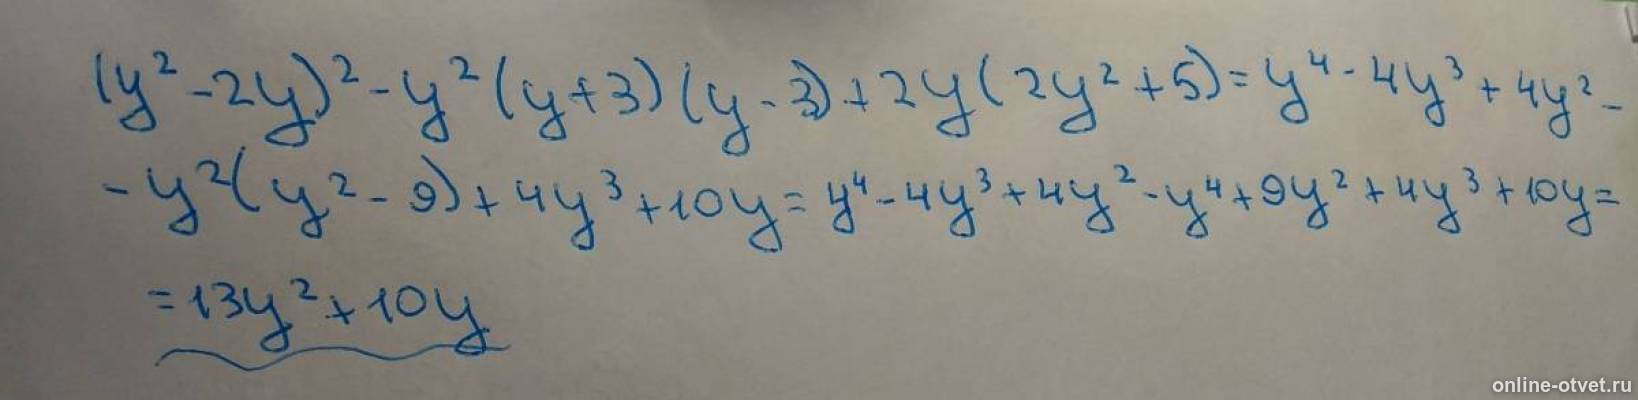 (y² - 2y)² - y²(y+3)(y-3) + 2y(2y²+5) = y⁴ - 4y³ + 4y² -
- y²(y² - 9) + 4y³ + 10y = y⁴ - 4y³ + 4y² - y⁴ + 9y² + 4y³ + 10y =
= 13y² + 10y
online-otvet.ru